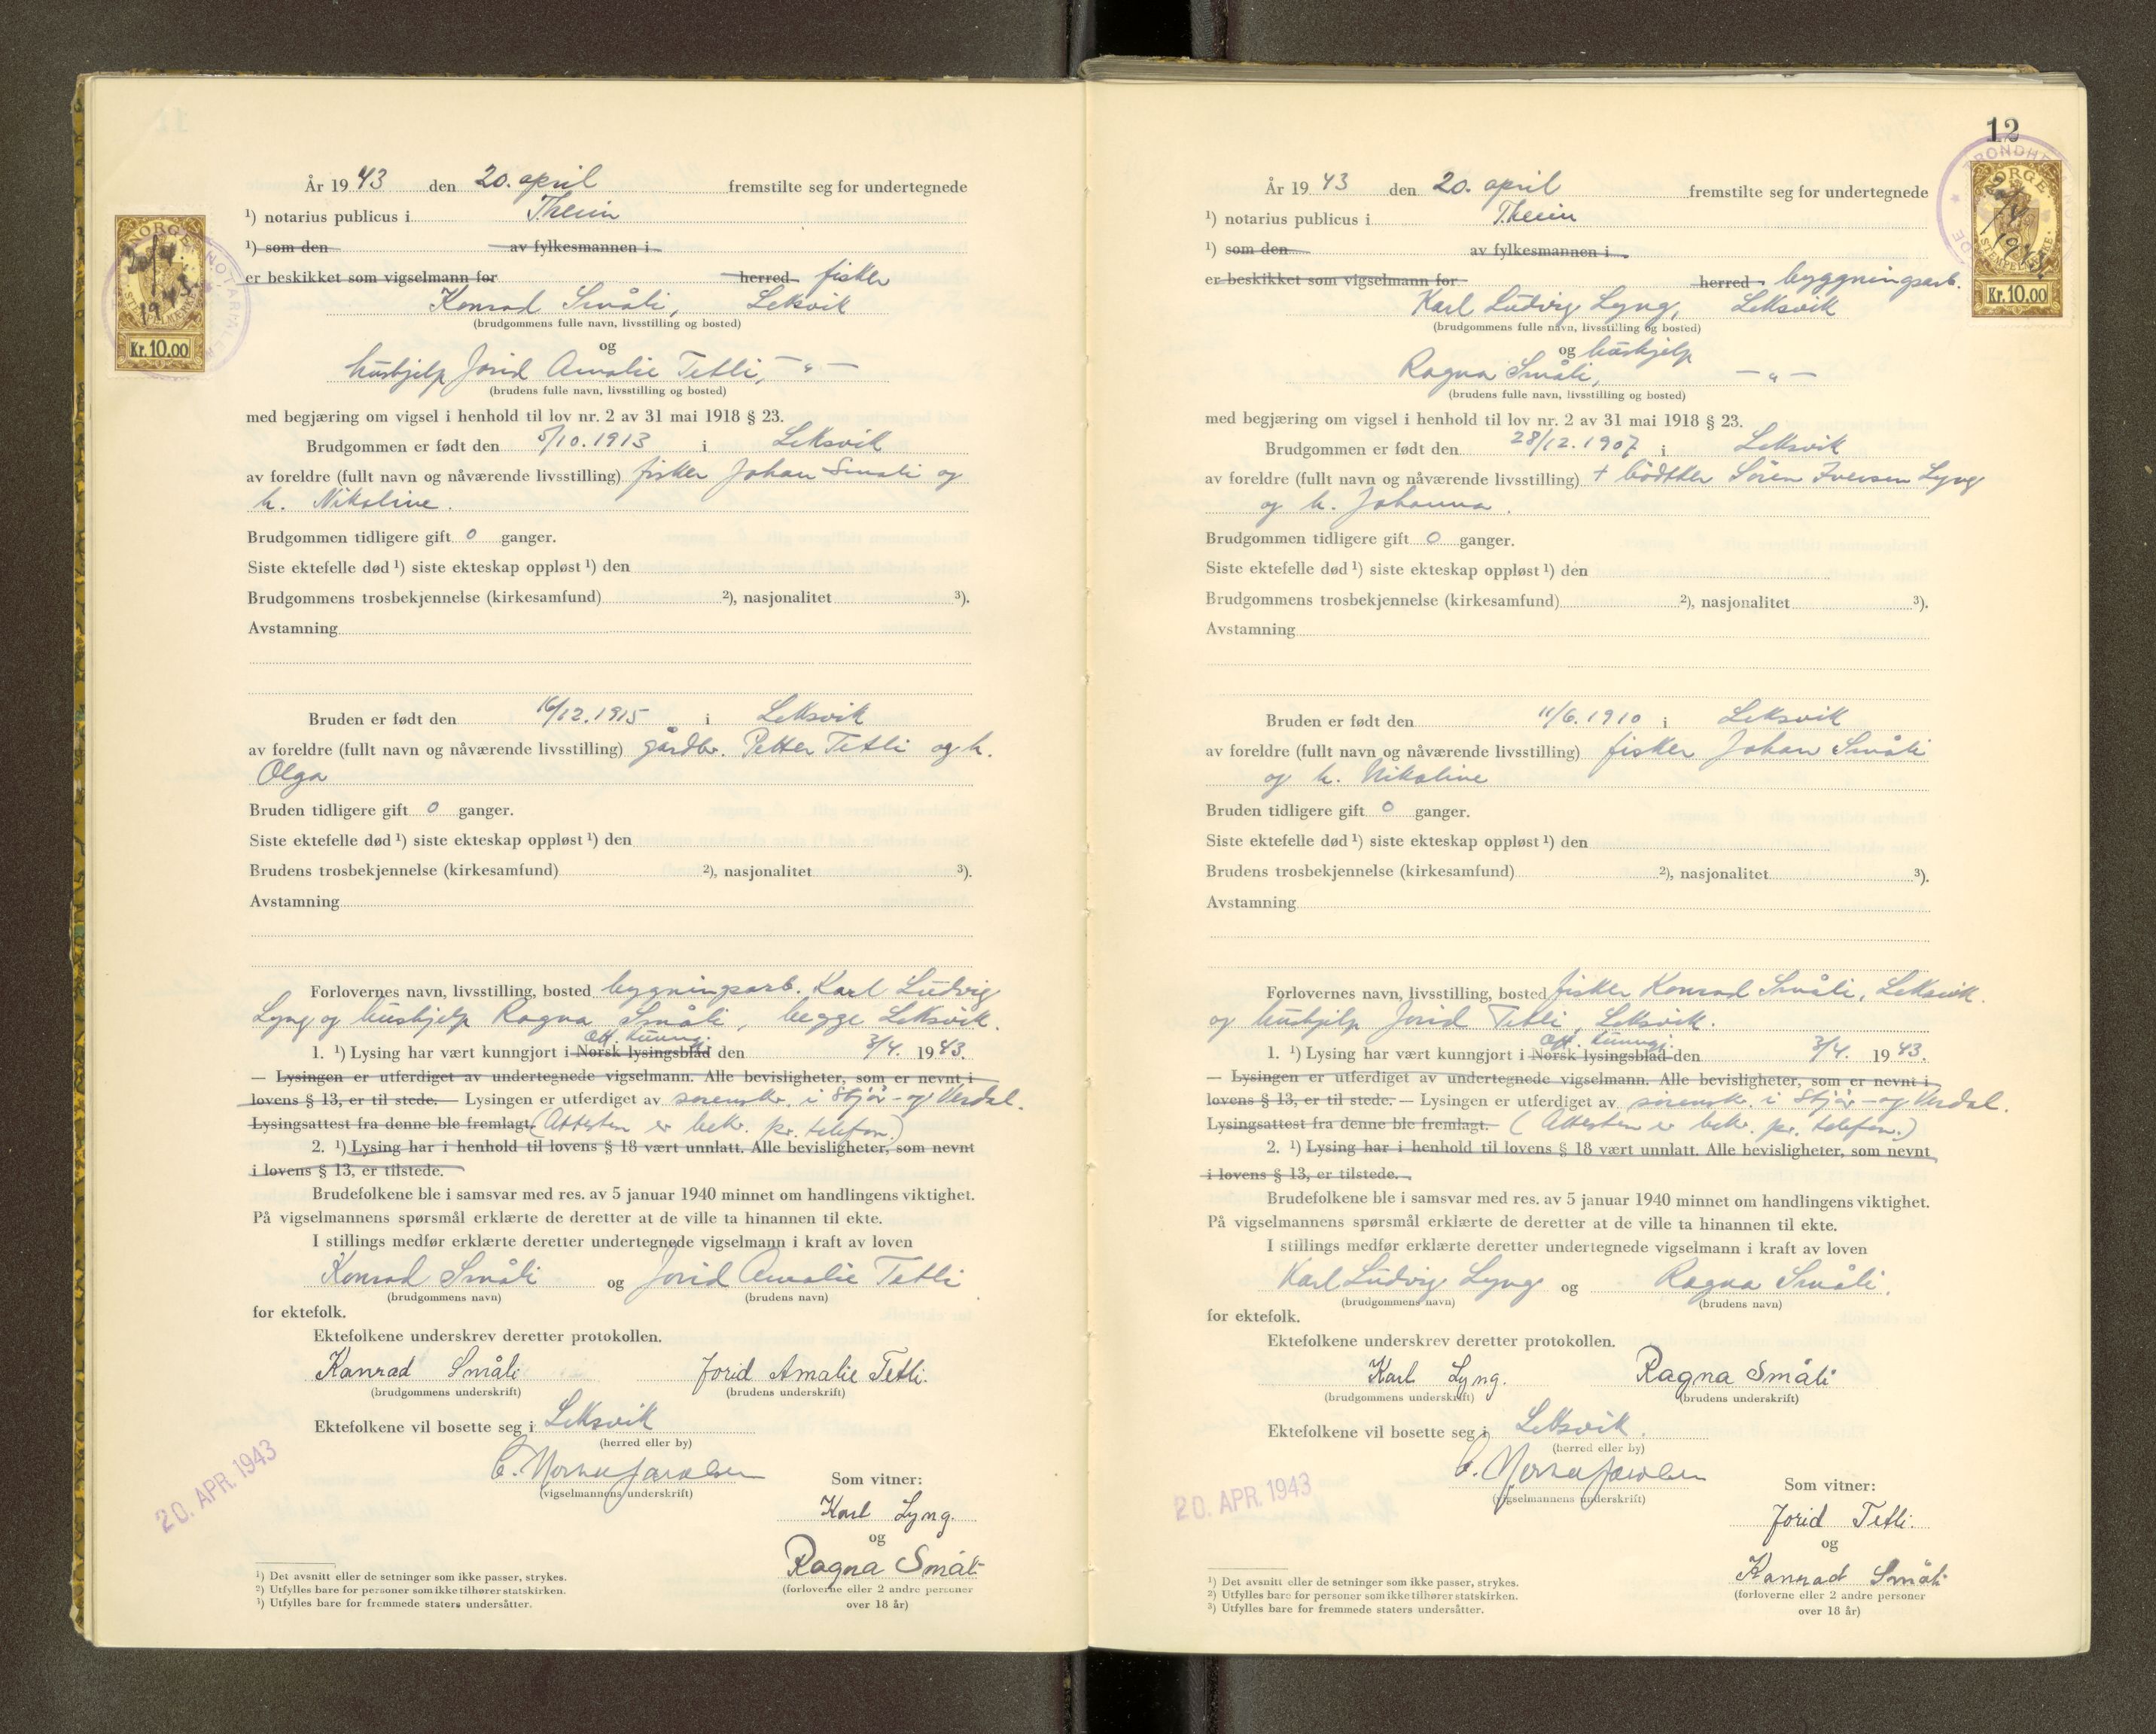 År 1943 den 20. april fremstilte seg for undertegnede
¹) notarius publicus i Theim
¹) som den av fylkesmannen i
er beskikket som vigselmann for herred fisker
Konrad Småli, Leksvik
(brudgommens fulle navn, livsstilling og bosted)
og
hushjelp Jorid Amalie Tetli, — " —
(brudens fulle navn, livsstilling og bosted)
med begjæring om vigsel i henhold til lov nr. 2 av 31 mai 1918 § 23.
Brudgommen er født den 5/10. 1913 i Leksvik
av foreldre (fullt navn og nåværende livsstilling) fisker Johan Småli og
h. Nikoline.
Brudgommen tidligere gift 0 ganger.
Siste ektefelle død ¹) siste ekteskap oppløst ¹) den
Brudgommens trosbekjennelse (kirkesamfund) ²), nasjonalitet ³).
Avstamning
Bruden er født den 16/12. 1915 i Leksvik
av foreldre (fullt navn og nåværende livsstilling) gårdbr. Petter Tetli og h.
Olga
Bruden tidligere gift 0 ganger.
Siste ektefelle død ¹) siste ekteskap oppløst ¹) den
Brudens trosbekjennelse (kirkesamfund) ²), nasjonalitet ³).
Avstamning
Forlovernes navn, livsstilling, bosted bygningsarb. Karl Ludvig
Lyng og hushjelp Ragna Småli, begge Leksvik.
Off. kunngj.
1. ¹) Lysing har vært kunngjort i Norsk lysingsblad den 3/4. 1943.
— Lysingen er utferdiget av undertegnede vigselmann. Alle bevisligheter, som er nevnt i
lovens § 13, er til stede. — Lysingen er utferdiget av sorenskr. i Stjør- og Verdal.
Lysingsattest fra denne ble fremlagt. (Attesten er bekr. pr. telefon.)
2. ¹) Lysing har i henhold til lovens § 18 vært unnlatt. Alle bevisligheter, som nevnt
i lovens § 13, er tilstede.
Brudefolkene ble i samsvar med res. av 5 januar 1940 minnet om handlingens viktighet.
På vigselmannens spørsmål erklærte de deretter at de ville ta hinannen til ekte.
I stillings medfør erklærte deretter undertegnede vigselmann i kraft av loven
Konrad Småli og Jorid Amalie Tetli
(brudgommens navn) (brudens navn)
for ektefolk.
Ektefolkene underskrev deretter protokollen.
Konrad Småli Jorid Amalie Tetli.
(brudgommens underskrift) (brudens underskrift)
Ektefolkene vil bosette seg i Leksvik
(herred eller by)
20. APR. 1943
(vigselmannens underskrift)
Som vitner:
Karl Lyng.
og
Ragna Småli
(forloverne eller 2 andre personer
over 18 år)
¹) Det avsnitt eller de setninger som ikke passer, strykes.
²) Utfylles bare for personer som ikke tilhører statskirken.
³) Utfylles bare for fremmede staters undersåtter.
NORGE
20/4.
1943
Kr. 10.00
12
År 1943 den 20. april fremstilte seg for undertegnede
¹) notarius publicus i Theim
¹) som den av fylkesmannen i
er beskikket som vigselmann for herred byggningsarb.
Karl Ludvig Lyng, Leksvik
(brudgommens fulle navn, livsstilling og bosted)
og hushjelp
Ragna Småli, — " —
(brudens fulle navn, livsstilling og bosted)
med begjæring om vigsel i henhold til lov nr. 2 av 31 mai 1918 § 23.
Brudgommen er født den 28/12. 1907 i Leksvik
av foreldre (fullt navn og nåværende livsstilling) + bödtker Sören Iversen Lyng
og h. Johanna.
Brudgommen tidligere gift 0 ganger.
Siste ektefelle død ¹) siste ekteskap oppløst ¹) den
Brudgommens trosbekjennelse (kirkesamfund) ²), nasjonalitet ³).
Avstamning
Bruden er født den 11/6. 1910 i Leksvik
av foreldre (fullt navn og nåværende livsstilling) fisker Johan Småli
og h. Nikoline
Bruden tidligere gift 0 ganger.
Siste ektefelle død ¹) siste ekteskap oppløst ¹) den
Brudens trosbekjennelse (kirkesamfund) ²), nasjonalitet ³).
Avstamning
Forlovernes navn, livsstilling, bosted fisker Konrad Småli, Leksvik.
og hushjelp Jorid Tetli, Leksvik.
Off. kunngj.
1. ¹) Lysing har vært kunngjort i Norsk lysingsblad den 3/4. 1943.
— Lysingen er utferdiget av undertegnede vigselmann. Alle bevisligheter, som er nevnt i
lovens § 13, er til stede. — Lysingen er utferdiget av sorenskr. i Stjør- og Verdal.
Lysingsattest fra denne ble fremlagt. (Attesten er bekr. pr. telefon.)
2. ¹) Lysing har i henhold til lovens § 18 vært unnlatt. Alle bevisligheter, som nevnt
i lovens § 13, er tilstede.
Brudefolkene ble i samsvar med res. av 5 januar 1940 minnet om handlingens viktighet.
På vigselmannens spørsmål erklærte de deretter at de ville ta hinannen til ekte.
I stillings medfør erklærte deretter undertegnede vigselmann i kraft av loven
Karl Ludvig Lyng og Ragna Småli.
(brudgommens navn) (brudens navn)
for ektefolk.
Ektefolkene underskrev deretter protokollen.
Karl Lyng. Ragna Småli
(brudgommens underskrift) (brudens underskrift)
Ektefolkene vil bosette seg i Leksvik.
(herred eller by)
20. APR. 1943
(vigselmannens underskrift)
Som vitner:
Jorid Tetli.
og
Konrad Småli
(forloverne eller 2 andre personer
over 18 år)
¹) Det avsnitt eller de setninger som ikke passer, strykes.
²) Utfylles bare for personer som ikke tilhører statskirken.
³) Utfylles bare for fremmede staters undersåtter.
NORGE
20/4
1943
Kr. 10.00